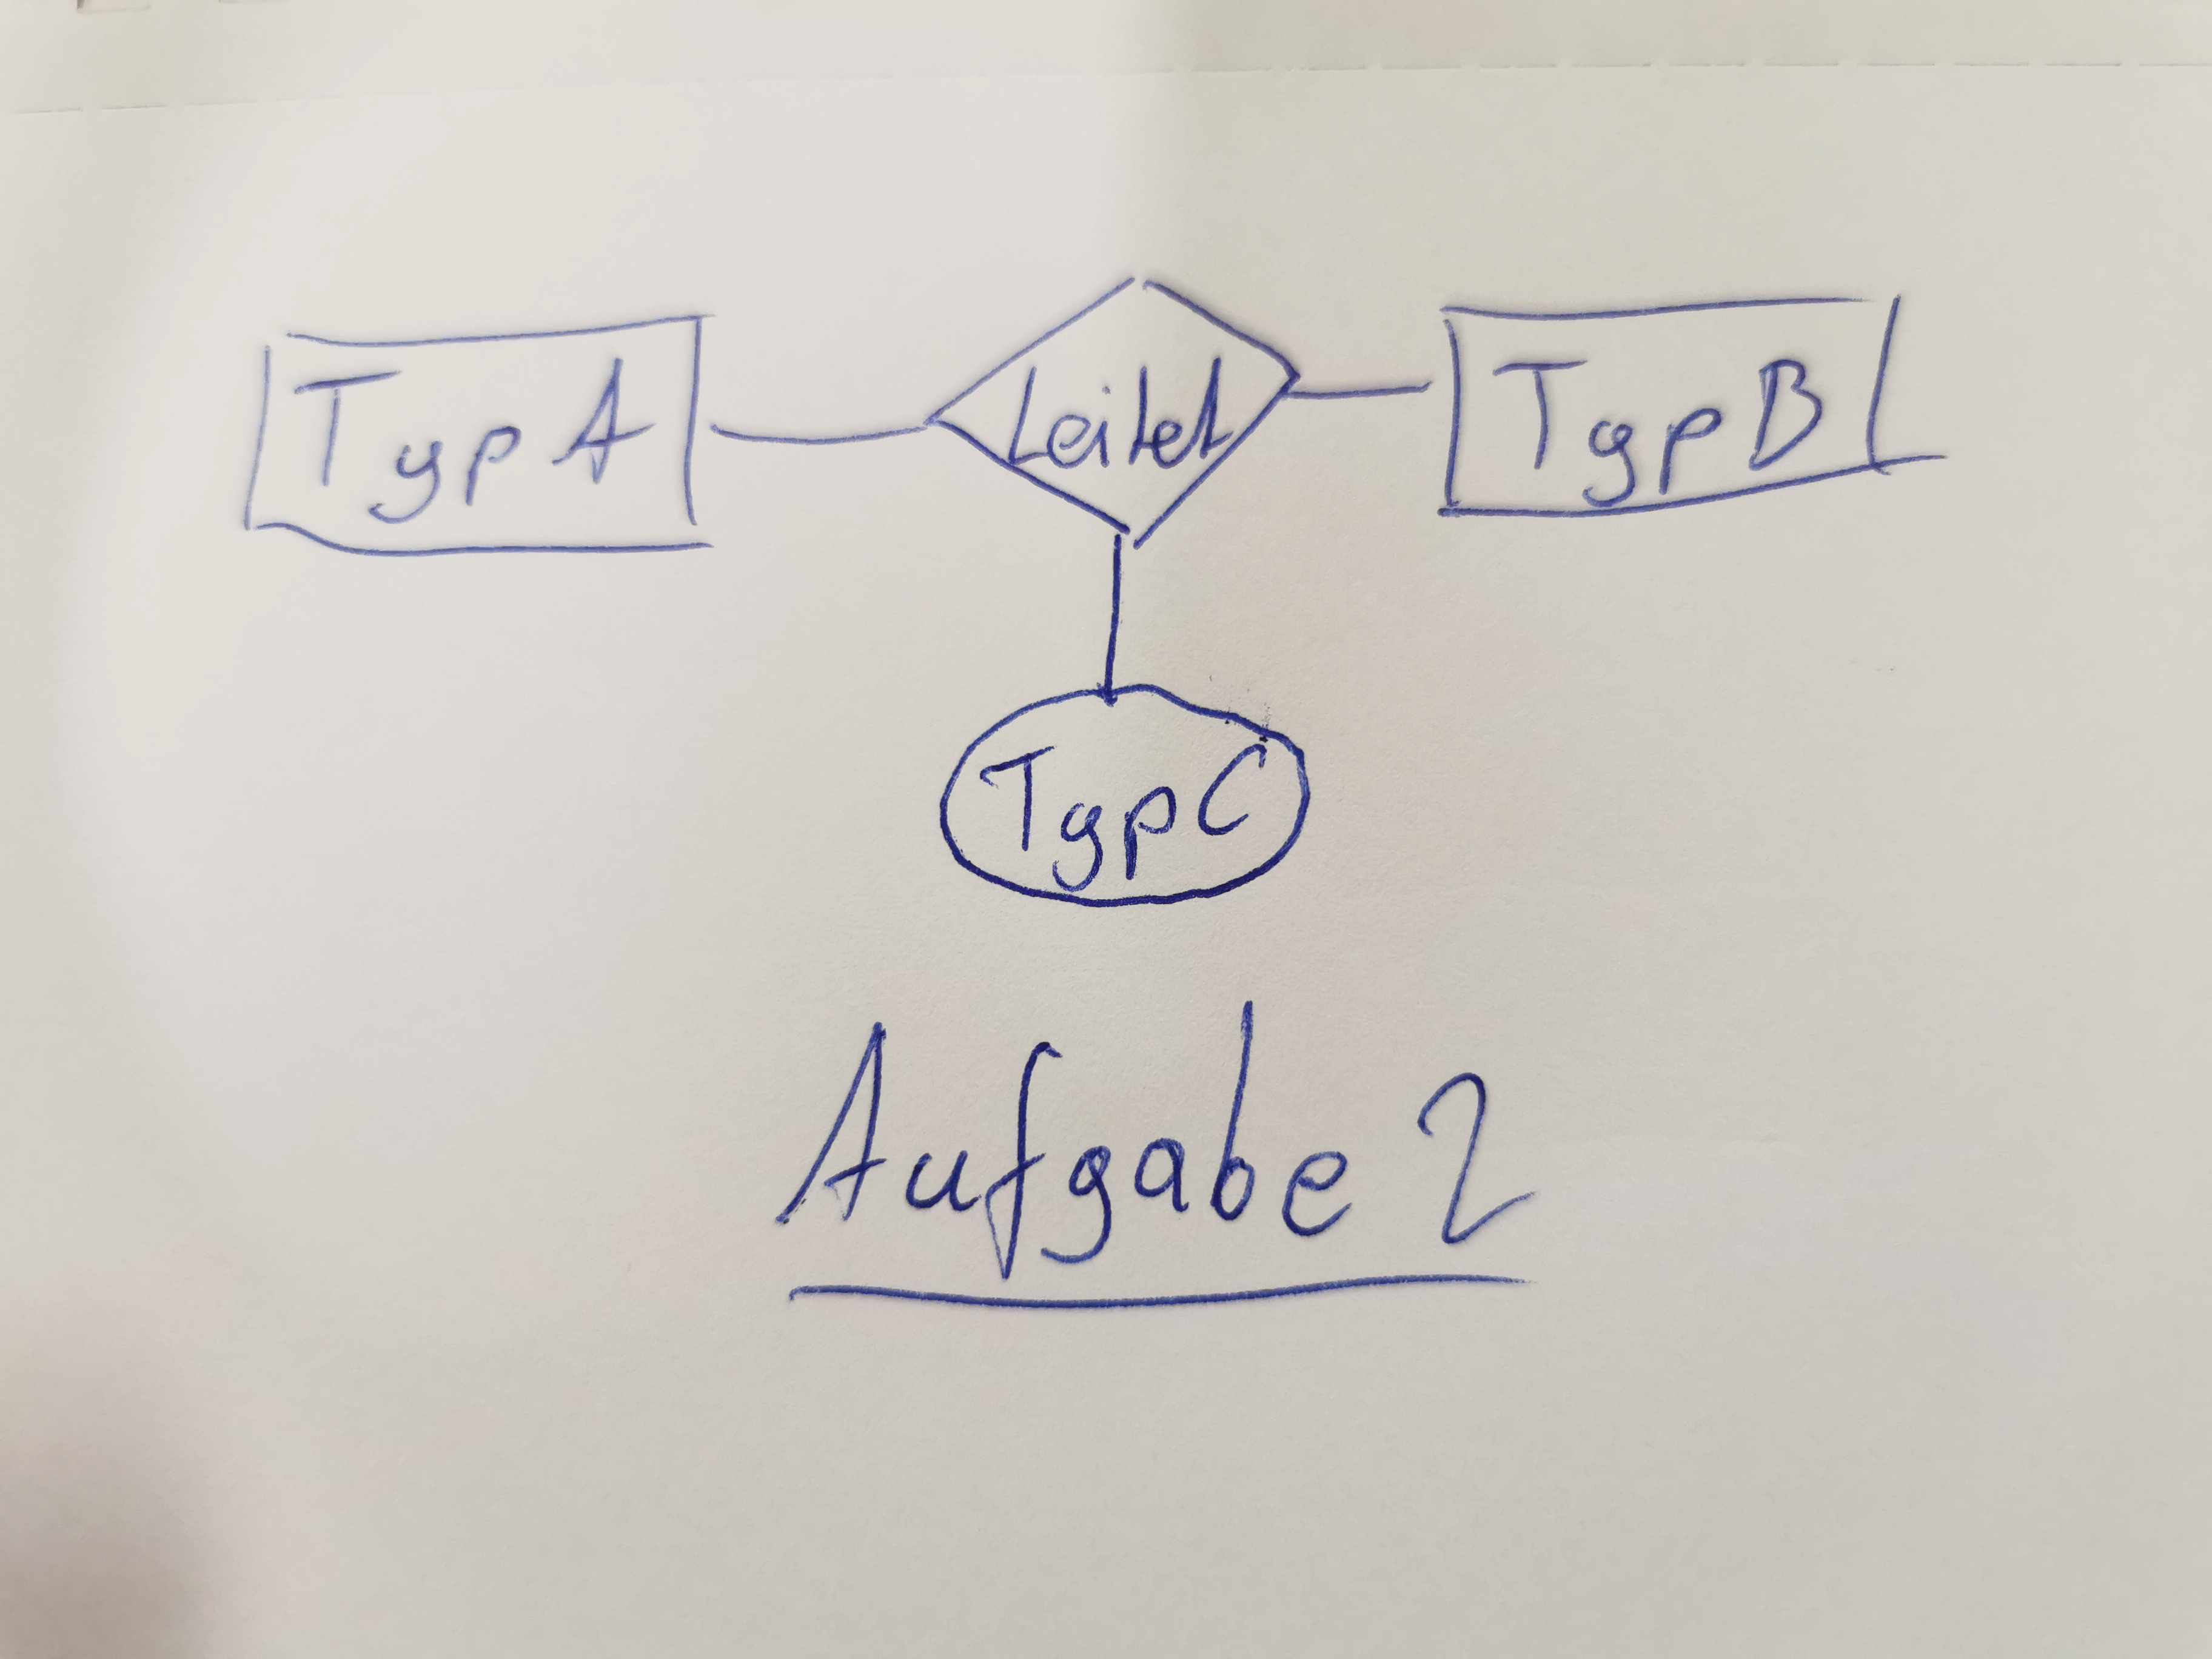 Typ A
Leitet
Typ B
Typ C
Aufgabe 2